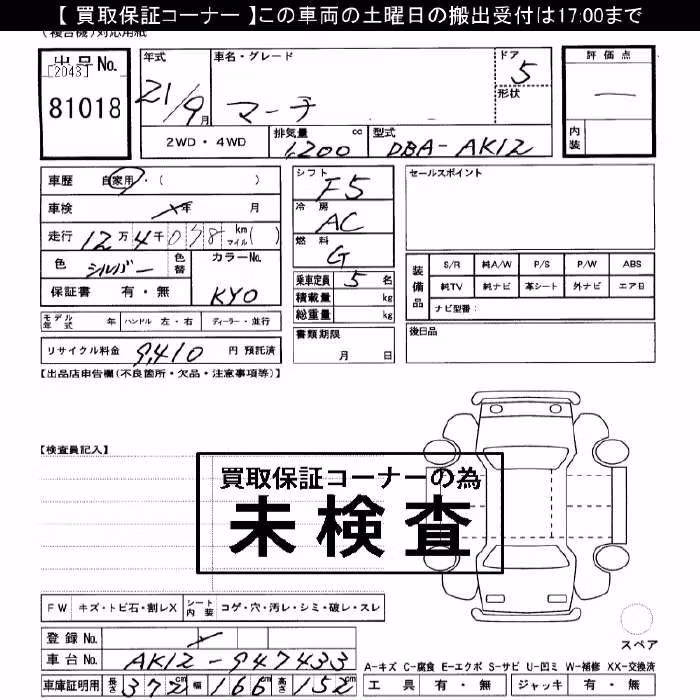 【 買取保証コーナー 】この車両の土曜日の搬出受付は17:00まで
(複合機)対応用紙
出品No. [2043] 81018
年式 21/9月
車名・グレード マーチ
ドア 5
形状
評価点 —
内装
2WD・4WD
排気量 1,200 cc
型式 DBA-AK12
車歴 自家用・( )
車検 年 月
走行 12万4千078 km マイル( )
色 シルバー 色替
カラーNo. KY0
保証書 有・無
モデル年式 年 ハンドル 左・右 ディーラー・並行
リサイクル料金 9,410 円 預託済
シフト F5
冷房 AC
燃料 G
乗車定員 5 名
積載量 kg
総重量 kg
書類期限 月 日
セールスポイント
装備品 S/R 純A/W P/S P/W ABS
純TV 純ナビ 革シート 外ナビ エアB
ナビ型番:
後日品
【出品店申告欄(不良箇所・欠品・注意事項等)】
【検査員記入】
買取保証コーナーの為
未検査
FW キズ・トビ石・割レX シート内装 コゲ・穴・汚レ・シミ・破レ・スレ
スペア
登録No.
車台No. AK12-947433
A-キズ C-腐食 E-エクボ S-サビ U-凹ミ W-補修 XX-交換済
車庫証明用 長さ 372cm 幅 166cm 高さ 152cm
工具 有・無 ジャッキ 有・無